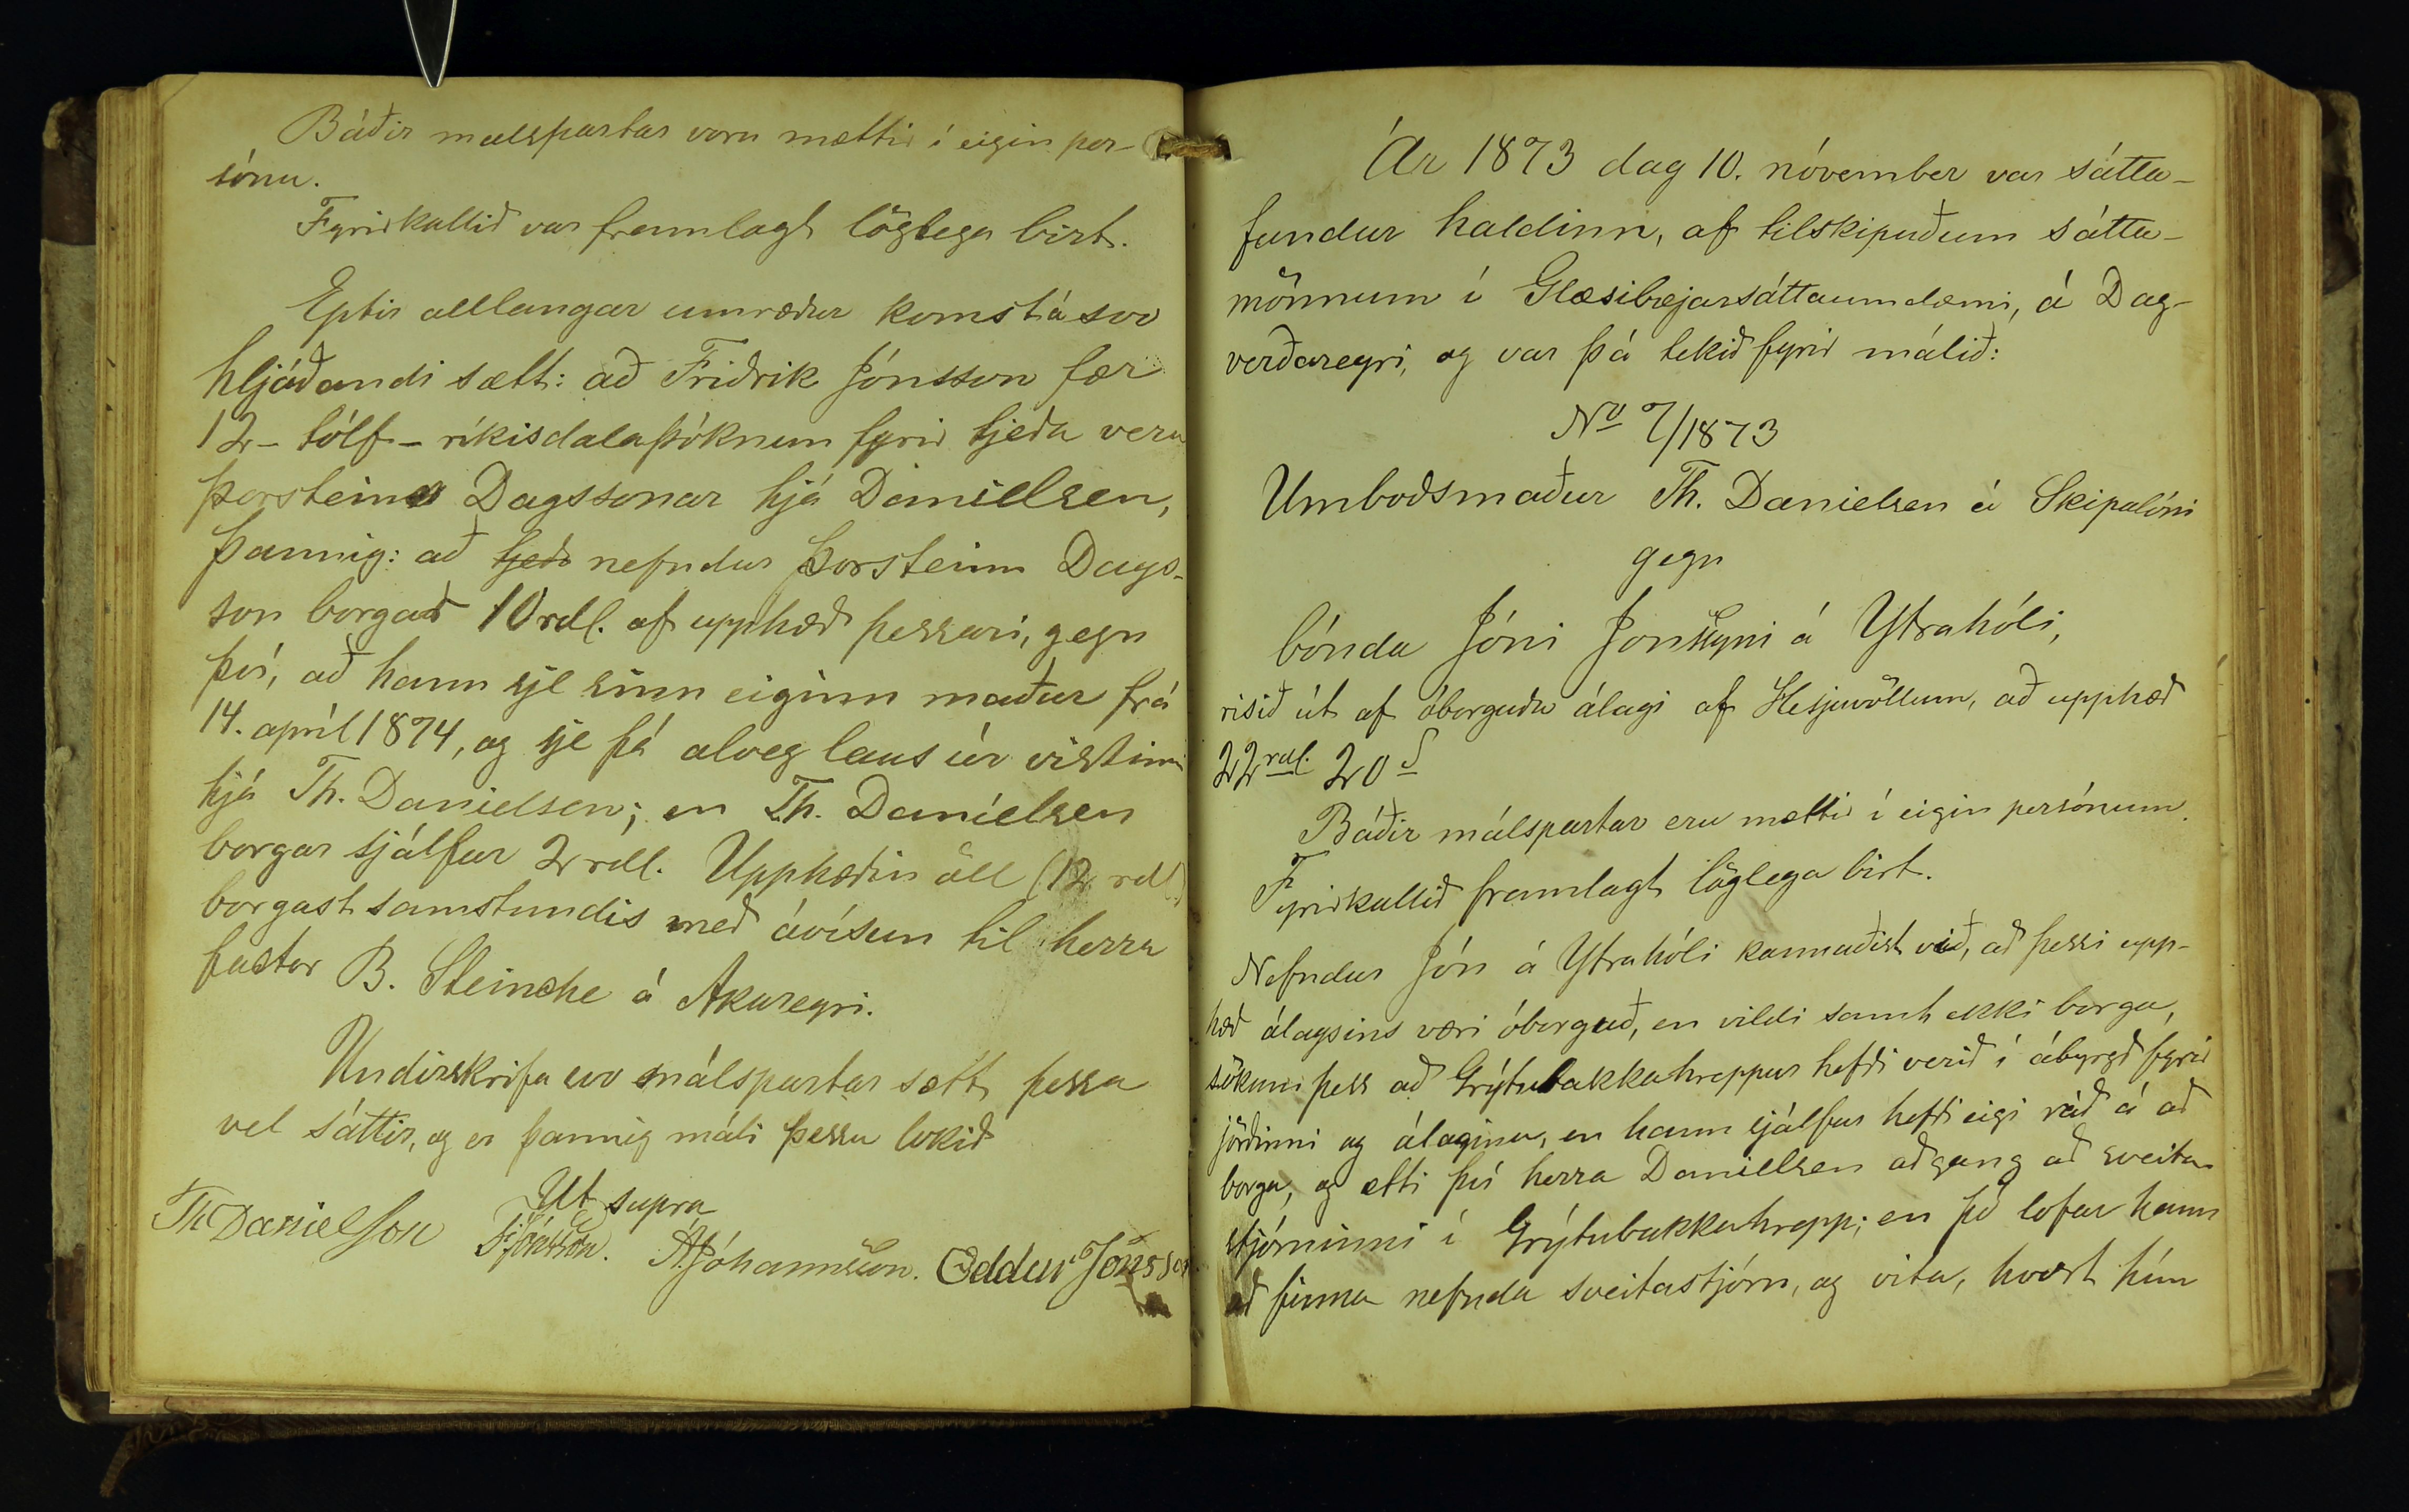 Báðir malspartar voru mættir í eigin per-
sónu.
Fyrirkallið var framlagt löglega birt.
Eptir alllangar umræður komst á svo
hljóðandi sætt: að Friðrik Jónsson fær
12 - tólf - ríkisdala þóknun fyrir tjeða veru
Þorsteins Dagssonar hjá Danielsen,
þannig: að tjeð nefndur Þorsteinn Dags-
son borgað 10 rdl. af upphæð þessari, gegn
því, að hann sje sinn eiginn maður frá
14. apríl 1874, og sje þá alveg laus úr vistinni
hjá Th. Danielsen; en Th. Daníelsen
borgar sjálfur 2 rdl. Upphæðin öll (12 rdl)
borgast samstundis með ávísun til herra
factor B. Steincke á Akureyri.
Undirskrifa svo málspartar sætt þessa
vel sáttir, og er þannig máli þessu lokið
Ut supra
Th Danielson F Jónsson. A. Jóhannsson. Oddur Jónsson
Ár 1873 dag 10. nóvember var sátta-
fundur haldinn, af tilskipuðum sátta-
mönnum í Glæsibæjarsáttaumdæmi, á Dag-
verðareyri, og var þá tekið fyrir málið:
No 7/1873
Umboðsmaður Th. Danielsen á Skipalóni
gegn
bónda Jóni Jonssyni á Ytrahóli,
risið út af óborguðu álagi af Hesjuvöllum, að upphæð
22 rdl. 20 s
Báðir málspartar eru mættir í eigin persónum.
Fyrirkallið framlagt löglega birt.
Nefndur Jón á Ytrahóli kannaðist við, að þessi upp-
hæð álagsins væri óborguð, en vildi samt ekki borga,
sökum þess að Grýtubakkahreppur hefði verið í ábyrgð fyrir
jörðinni og álaginu, en hann sjálfur hefði eigi ráð á að
borga, og ætti því herra Danielsen aðgang að sveitar
stjórninni í Grýtubakkahrepp; en þó lofar hann
að finna nefnda sveitastjórn, og vita, hvort hún